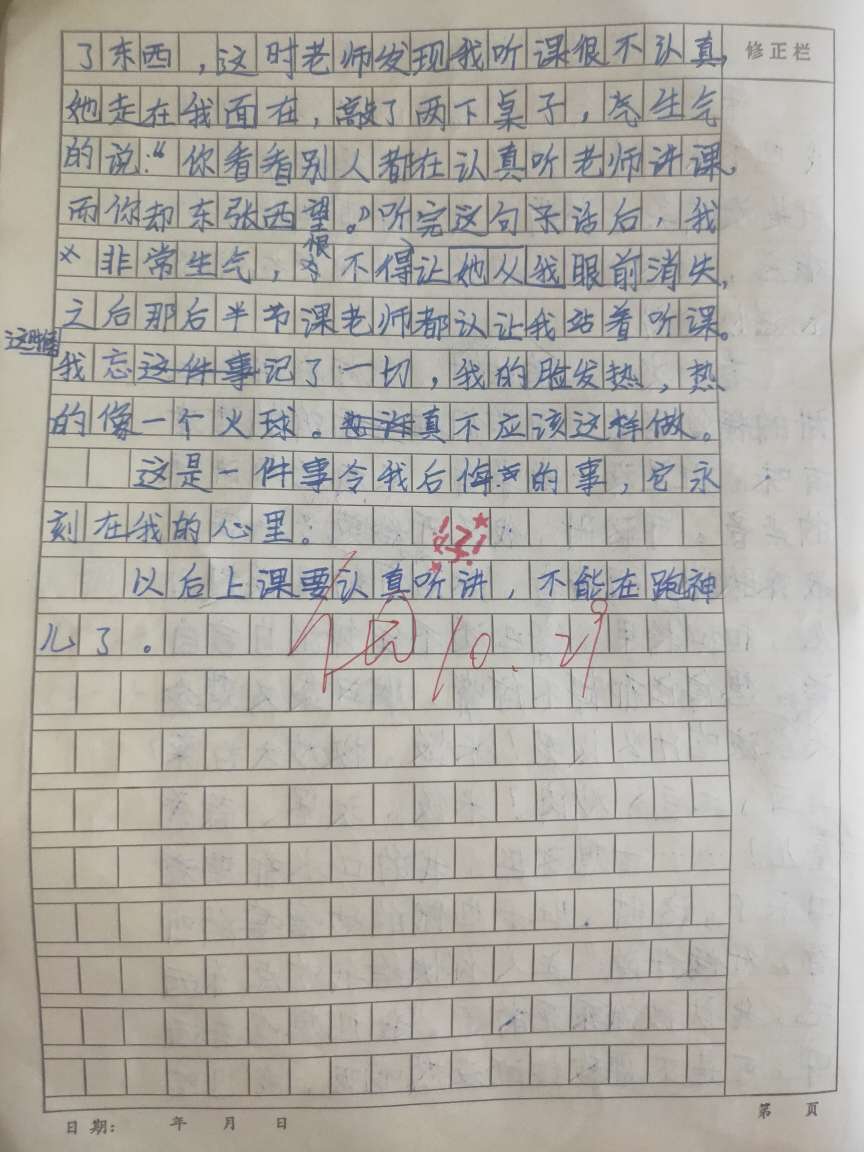 修正栏
了东西，这时老师发现我听课很不认真，
她走在我面在，敲了两下桌子，气生气
的说：“你看看别人都在认真听老师讲课，
而你却东张西望。”听完这句子话后，我
非常生气，恨不得让她从我眼前消失，
之后那后半节课老师都认让我站着听课。
这时候
我忘这件事记了一切，我的脸发热，热
的像一个火球。真不应该这样做。
这是一件事令我后悔的事，它永
刻在我的心里。
以后上课要认真听讲，不能在跑神
儿了。
好
10.29
日期： 年 月 日
第 页